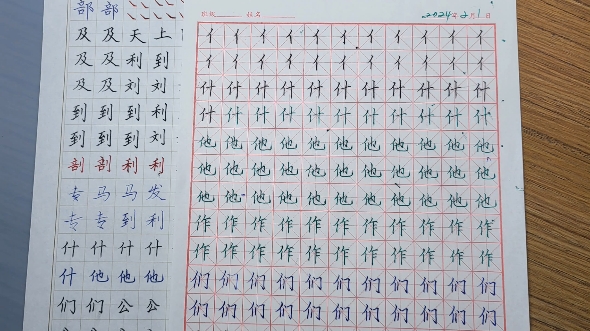 部 部
及 及 天 上
及 及 利 到
及 及 刘 刘
到 到 到 利
到 到 到 刘
剖 剖 利 利
专 马 马 发
专 专 到 利
什 什 什 什
什 他 他 他
们 们 公 公
姓名 2024年2月1日
亻 亻 亻 亻 亻 亻 亻 亻 亻 亻 亻
亻 亻 亻 亻 亻 亻 亻 亻 亻 亻 亻
什 什 什 什 什 什 什 什 什 什 什
什 什 什 什 什 什 什 什 什 什 什
他 他 他 他 他 他 他 他 他 他 他
他 他 他 他 他 他 他 他 他 他 他
他 他 他 他 他 他 他 他 他 他 他
作 作 作 作 作 作 作 作 作 作 作
作 作 作 作 作 作 作 作 作 作 作
们 们 们 们 们 们 们 们 们 们 们
们 们 们 们 们 们 们 们 们 们 们